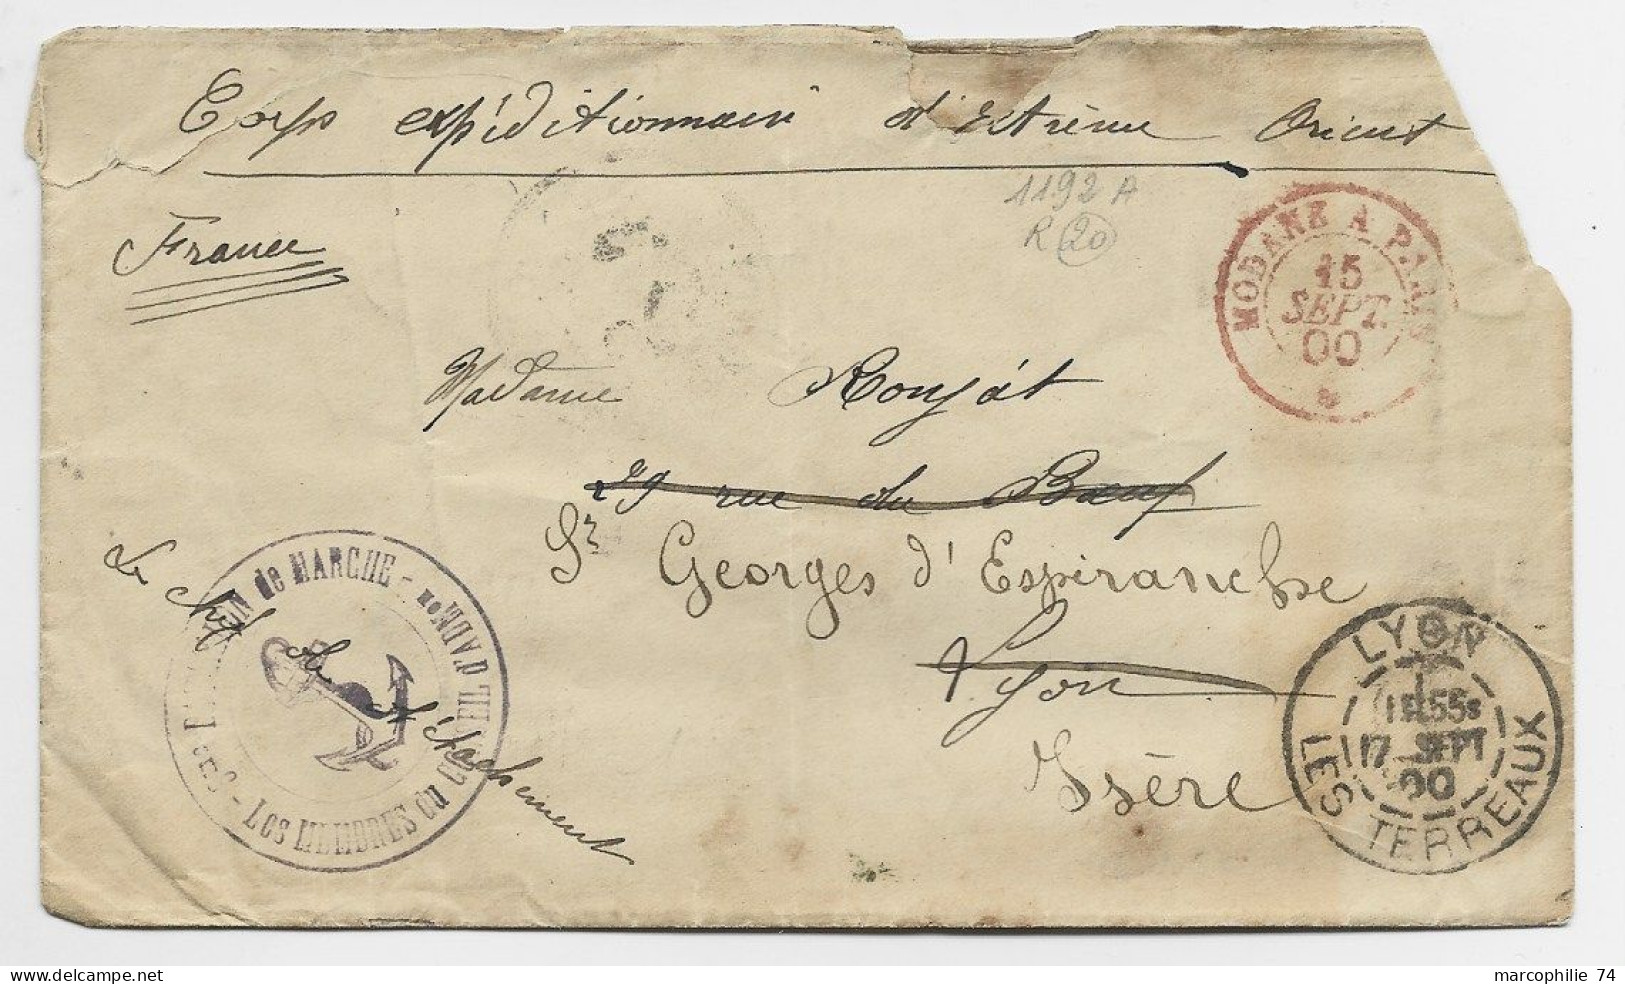 Corps expéditionnaire d'Extrème Orient
France
1192 A
R 20
MODANE A PARIS
15
SEPT.
00
Madame Roujat
29 rue du Bœuf
St Georges d'Espéranche
Lyon
Isère
Le chef de détachement
de MARCHE - CONSEIL d'ADMon - Les MEMBRES du
LYON
55s
17 SEPT
00
LES TERREAUX
marcophilie 74